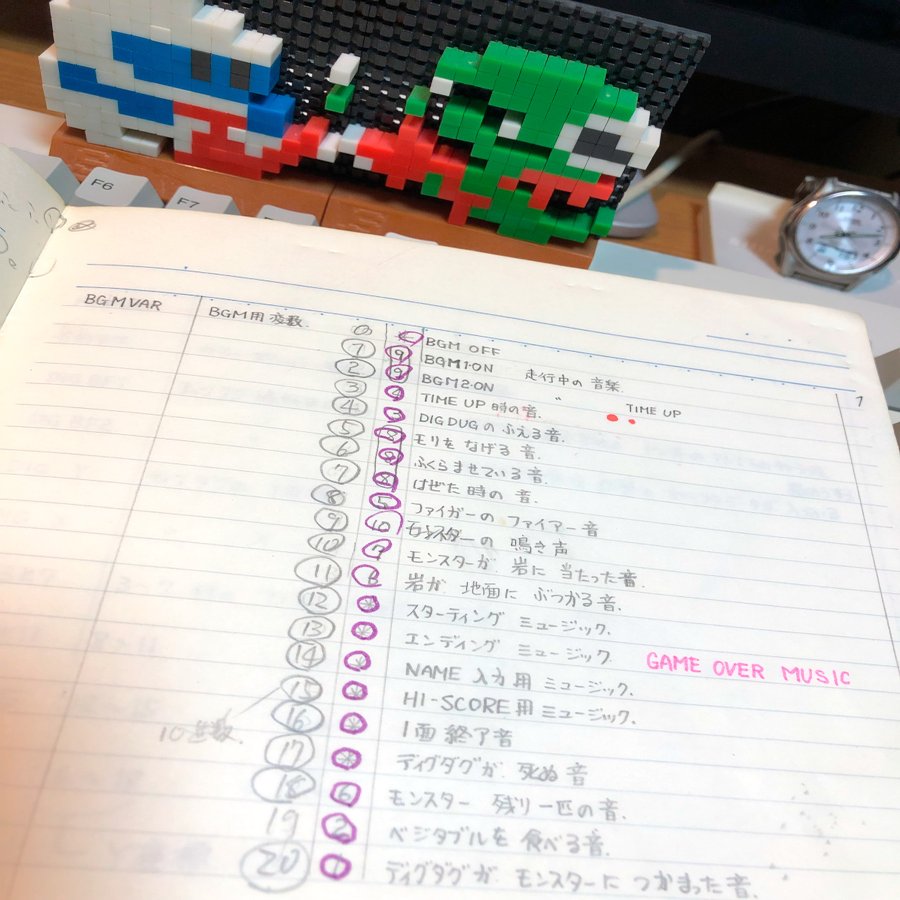 F6
F7
BGMVAR BGM用変数 0 BGM OFF
1 9 BGM1·ON 走行中の音楽
2 9 BGM2·ON 〃
3 4 TIME UP時の音. TIME UP
4 3 DIGDUGのふえる音.
5 モリをなげる音.
6 ふくらませている音.
7 8 はぜた時の音.
8 5 ファイガーのファイアー音
9 10 モンスターの鳴き声
10 7 モンスターが岩に当たった音.
11 岩が地面にぶつかる音.
12 ※ スターティングミュージック.
13 ※ エンディングミュージック. GAME OVER MUSIC
14 ※ NAME入力用ミュージック.
15 ※ HI-SCORE用ミュージック.
16 ※ 1面終了音
17 ※ ディグダグが死ぬ音
18 6 モンスター残り一匹の音.
19 2 ベジタブルを食べる音.
20 1 ディグダグがモンスターにつかまった音.